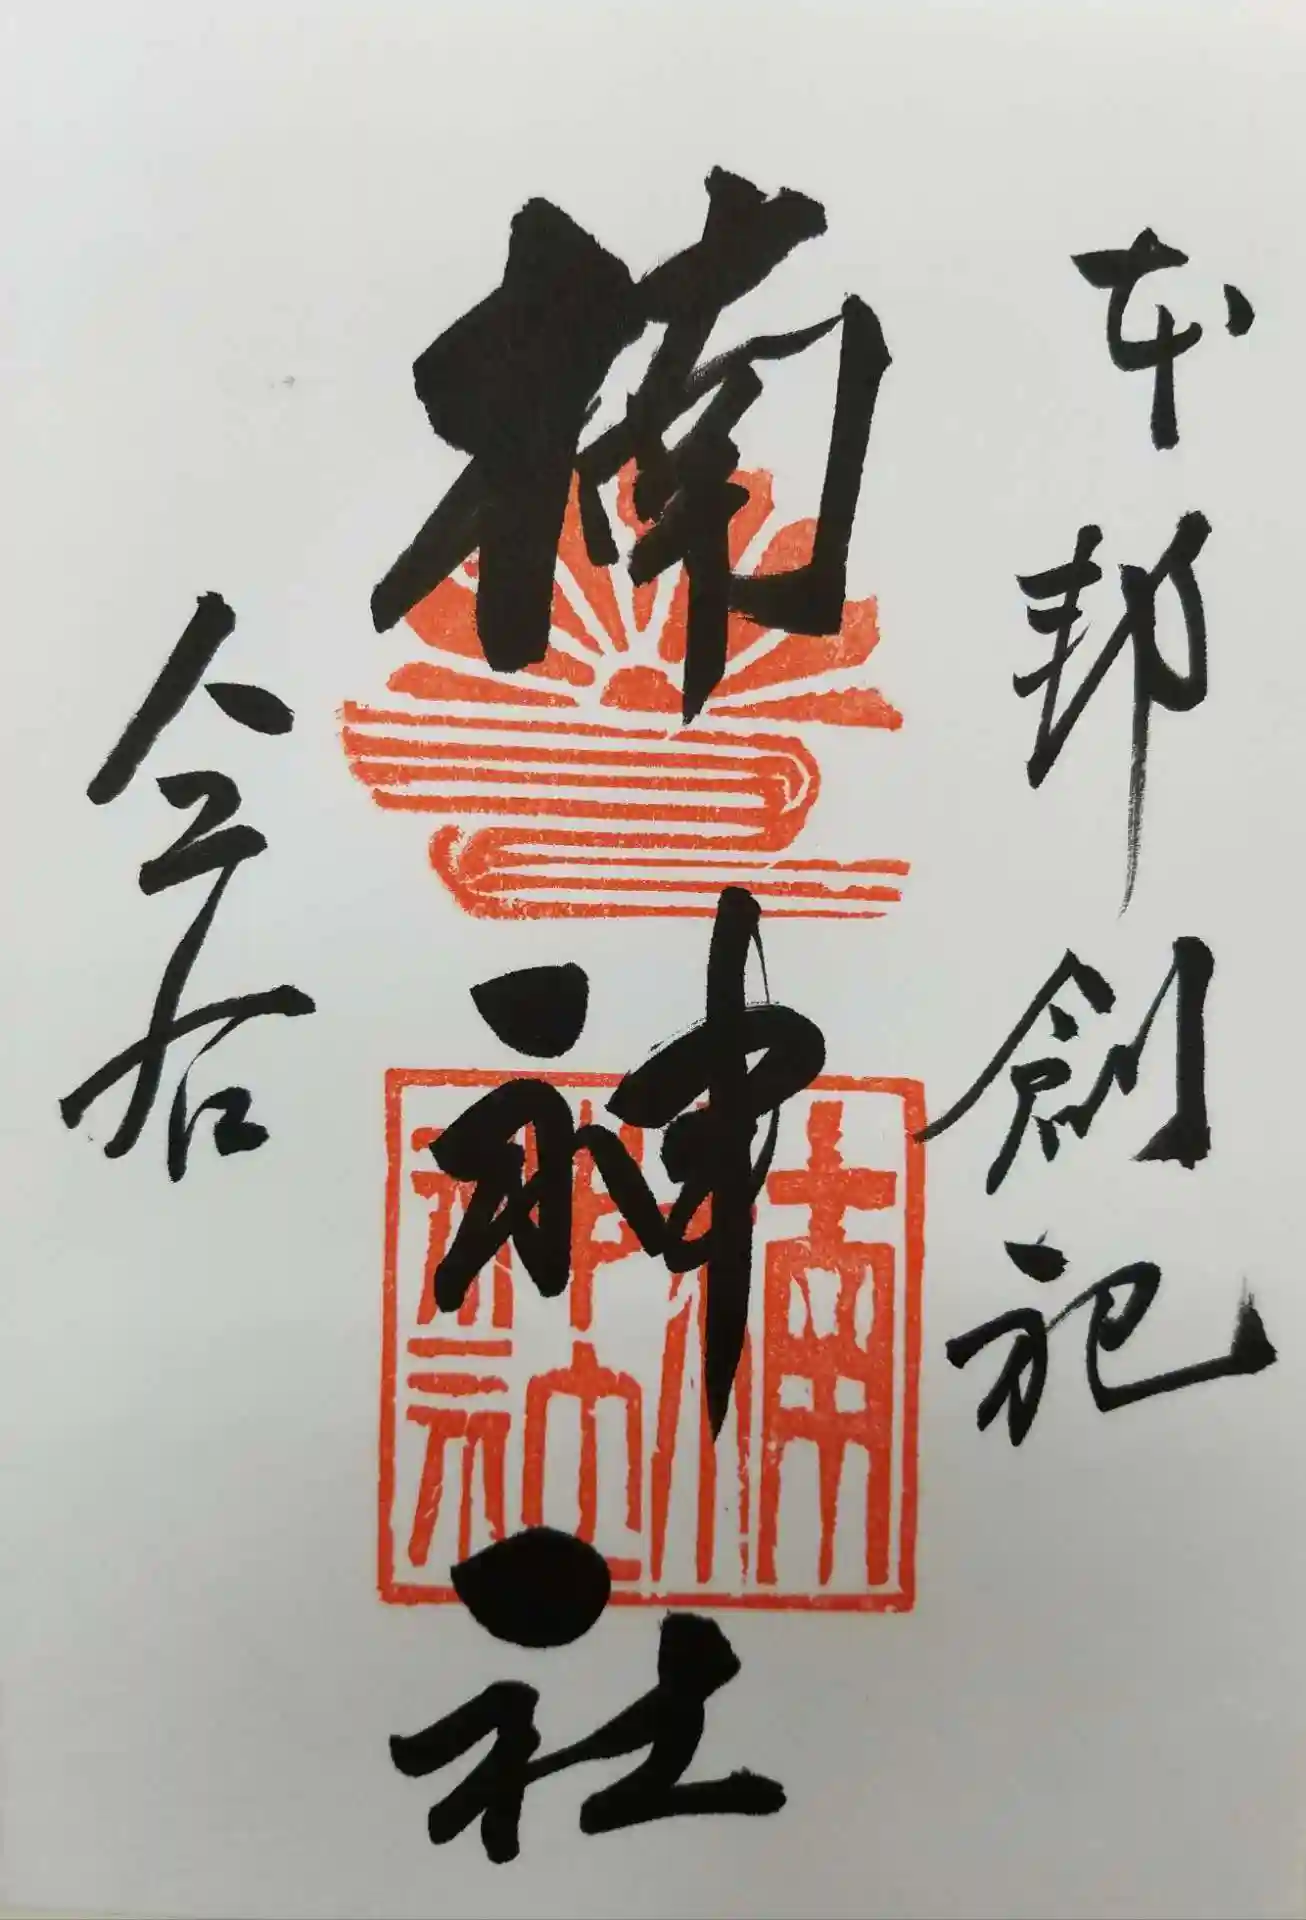 本邦創祀
楠神社
合右
楠神社